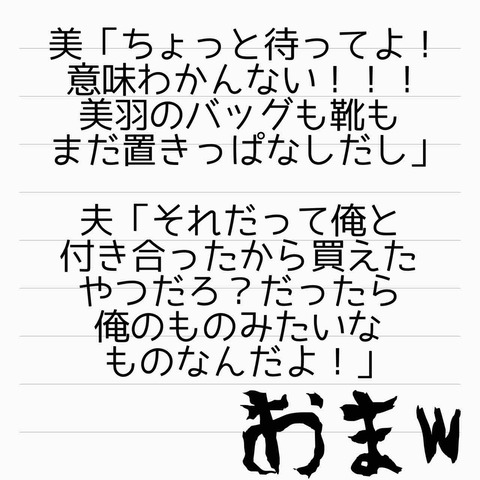 美「ちょっと待ってよ！
意味わかんない！！！
美羽のバッグも靴も
まだ置きっぱなしだし」
夫「それだって俺と
付き合ったから買えた
やつだろ？だったら
俺のものみたいな
ものなんだよ！」
おまw